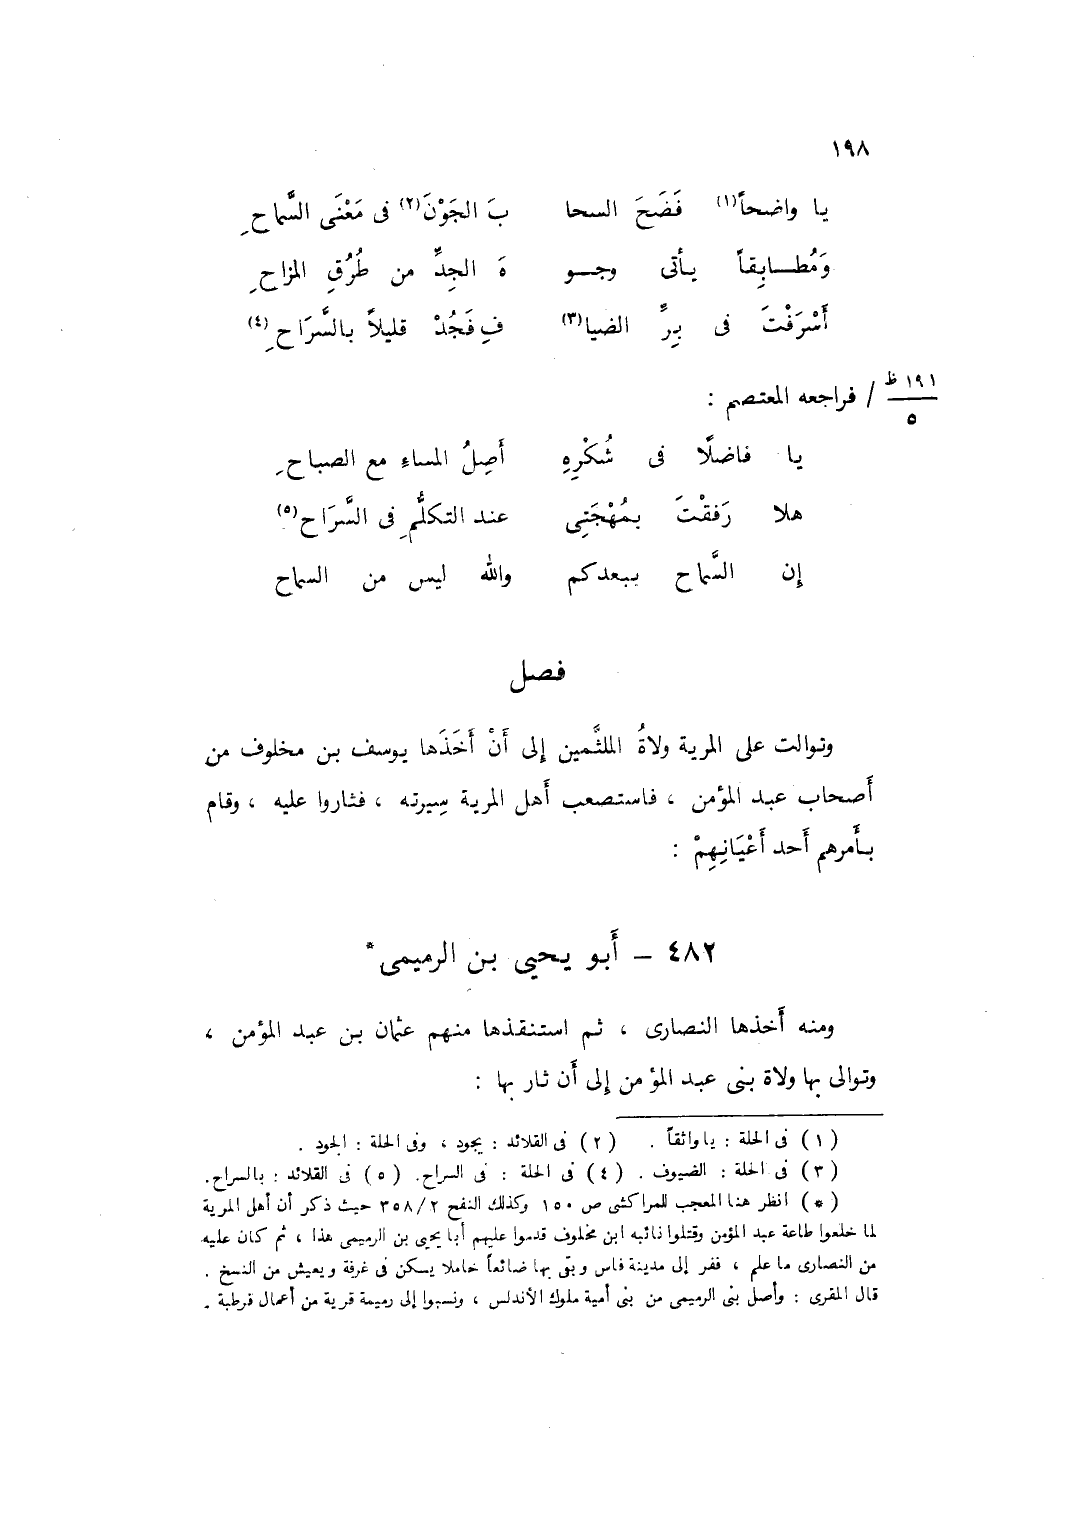 ١٩٨
يا واضحاً(١) فَضَحَ السحا بَ الجَوْنَ(٢) فى مَعْنَى السَّماحِ
وَمُطابِقاً يأتى وجو هَ الجِدِّ من طُرُقِ المزاحِ
أَسْرَفْتَ فى بِرِّ الضيا(٣) فِ فَجُدْ قليلاً بالسَّرَاحِ(٤)
١٩١ ظ / فراجعه المعتصم :
٥
يا فاضلًا فى شُكْرِهِ أَصِلُ المساءِ مع الصباحِ
هلا رَفقْتَ بمُهْجَتِى عند التكلُّمِ فى السَّرَاحِ(٥)
إِن السَّماح ببعدكم والله ليس من السماح
فصل
وتوالت على المرية ولاةُ الملثَّمين إلى أَنْ أَخَذَها يوسف بن مخلوف من
أَصحاب عبد المؤمن ، فاستصعب أَهل المرية سِيرته ، فثاروا عليه ، وقام
بأَمرهم أَحد أَعْيَانِهِمْ :
٤٨٢ – أَبو يحيى بن الرميمى*
ومنه أَخذها النصارى ، ثم استنقذها منهم عثمان بن عبد المؤمن ،
وتوالى بها ولاة بنى عبد المؤمن إلى أَن ثار بها :
(١) فى الحلة : ياواثقاً . (٢) فى القلائد : يجود ، وفى الحلة : الجود .
(٣) فى الحلة : الضيوف . (٤) فى الحلة : فى السراح. (٥) فى القلائد : بالسراح.
(*) انظر هنا المعجب للمراكشى ص ١٥٠ وكذلك النفح ٣٥٨/٢ حيث ذكر أن أهل المرية
لما خلعوا طاعة عبد المؤمن وقتلوا نائبه ابن مخلوف قدموا عليهم أبا يحيى بن الرميمى هذا ، ثم كان عليه
من النصارى ما علم ، ففر إلى مدينة فاس وبقى بها ضائعاً خاملا يسكن فى غرفة ويعيش من النسخ .
قال المقرى : وأصل بنى الرميمى من بنى أمية ملوك الأندلس ، ونسبوا إلى رميمة قرية من أعمال قرطبة .